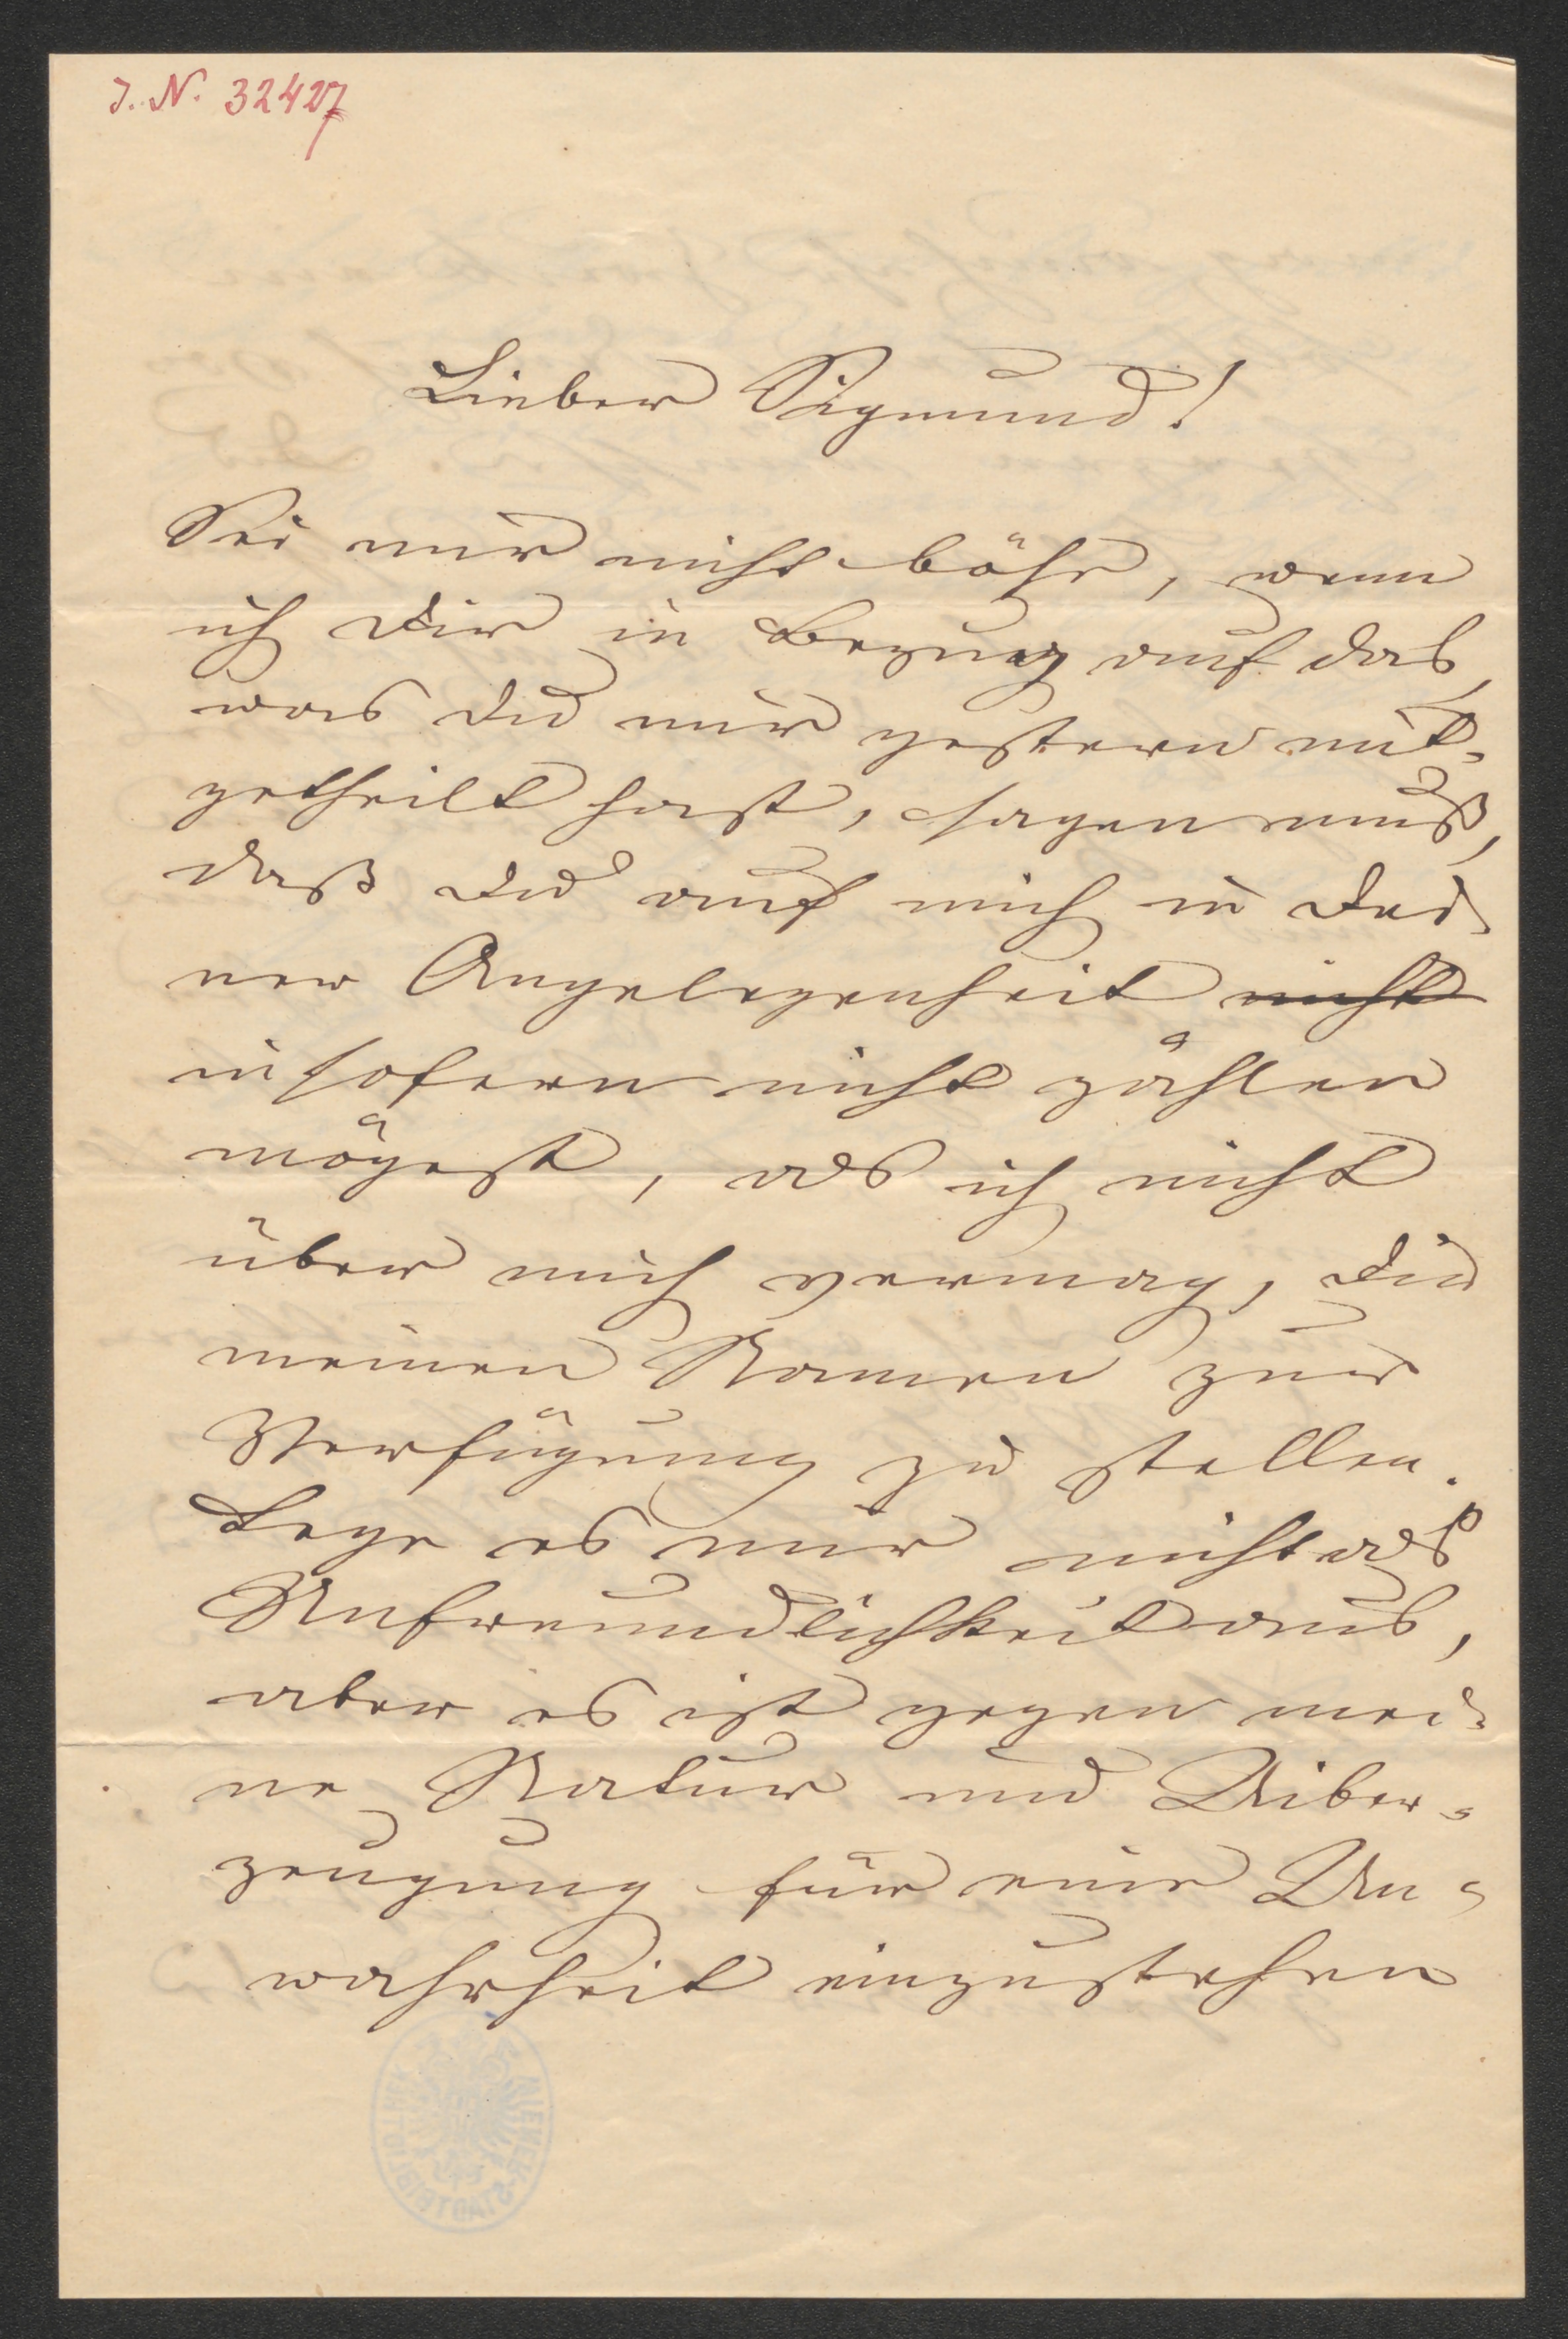 J. N. 32427
Lieber Sigmund!
Sei mir nicht böse, wenn
ich Dir in Bezug auf das,
was Du mir gestern mit-
getheilt hast, sagen muß,
daß Du auf mich in Dei-
ner Angelegenheit nicht
insofern nicht zählen
mögest, als ich nicht
über mich vermag, Dir
meinen Namen zur
Verfügung zu stellen.
Lege es mir nicht als
Unfreundlichkeit aus,
aber es ist gegen mei-
ne Natur und Uiber-
zeugung für eine Un-
wahrheit einzustehen